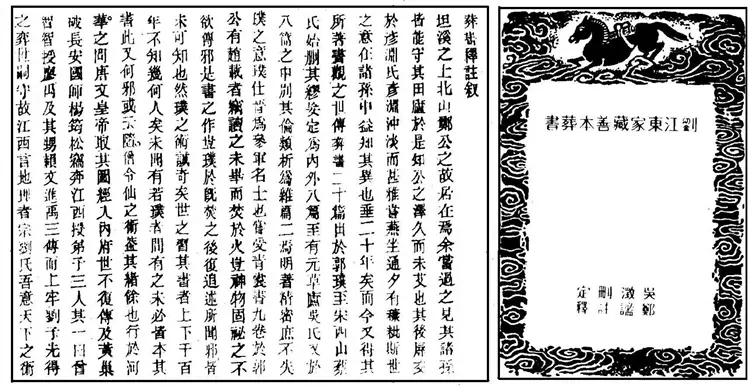 劉江東家藏善本葬書
吳澂刪定
鄭謐註釋
葬書釋註敘
坦溪之上北山鄭公之故居在焉余嘗過之見其諸孫
皆能守其田廬於是知公之澤久而未艾也其後友
於彥淵氏彥淵沖淡而甚雅嘗燕坐通夕有穢粃斯世
之意在諸孫中益知其異也垂二十年矣而今又得其
所著書觀之世傳葬書二十篇出於郭璞至宋西山蔡
氏始刪其繆妄定為內外八篇至有元草廬吳氏又於
八篇之中別其倫類析為雜篇二焉明著精密庶不失
璞之意璞仕晉為參軍名士也嘗受青囊書九卷於郭
公有趙載者竊讀之未畢而焚於火豈神物固祕之不
欲傳邪是書之作豈璞於既焚之後復追述所聞邪
未可知也然璞之術誠奇矣世之習其書者上下千百
年不知幾何人矣未聞有若璞者間有之未必皆本其
書此又何邪或云僧令仙之術蓋其緒餘也行於河
華之間唐文皇帝取其圖經入內府世不復傳及黃巢
破長安國師楊筠松竊奔江西授弟子三人其一曰曾
智智授廖禹及其甥賴文進禹三傳而上牢劉子先得
之世嗣守故江西言地理者宗劉氏吾意天下之術